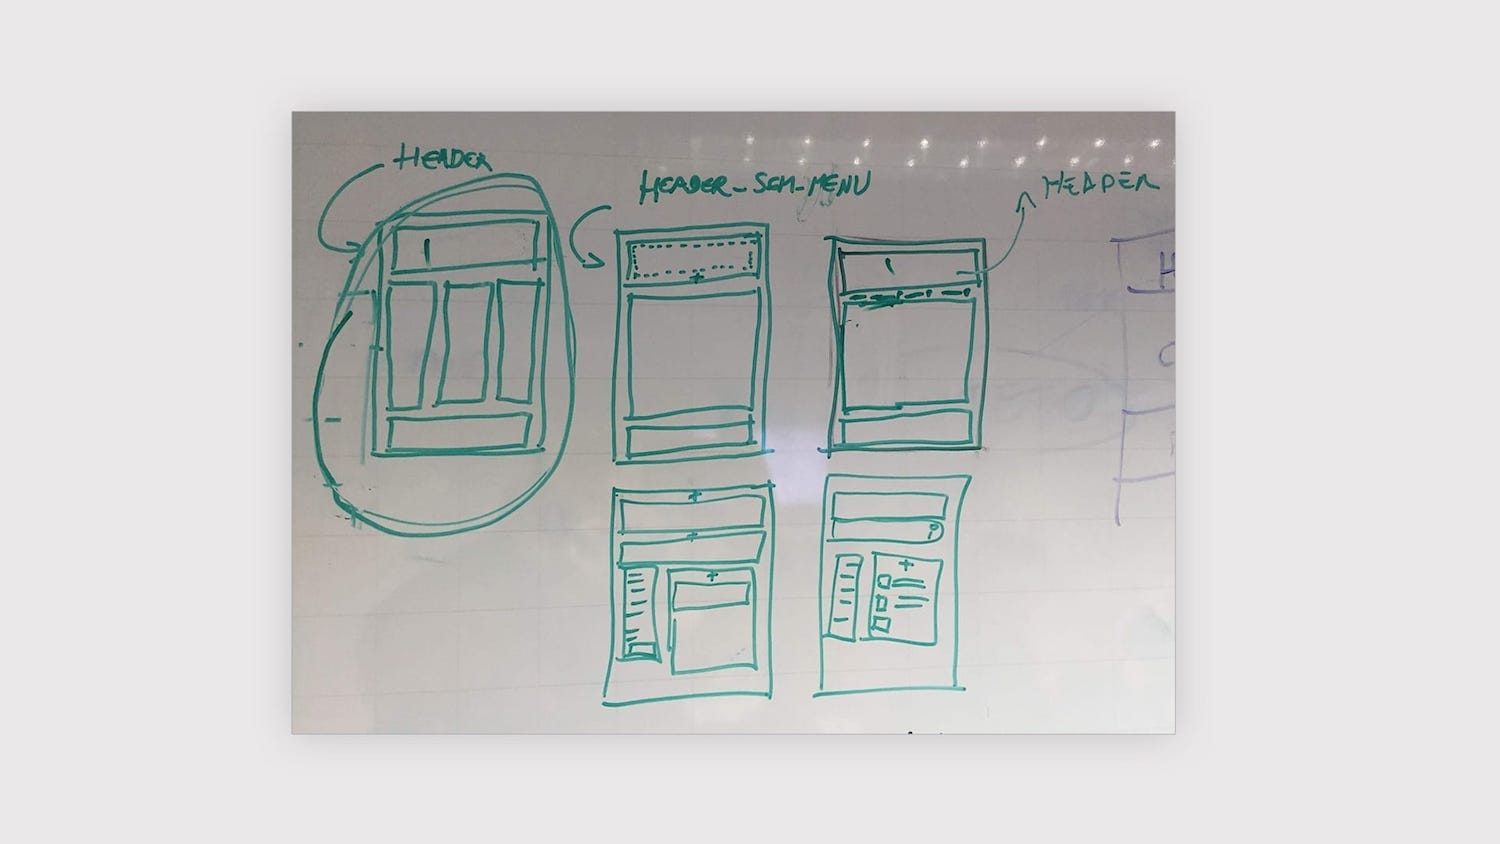 HEADER
HEADER_SEM_MENU
HEADER
H